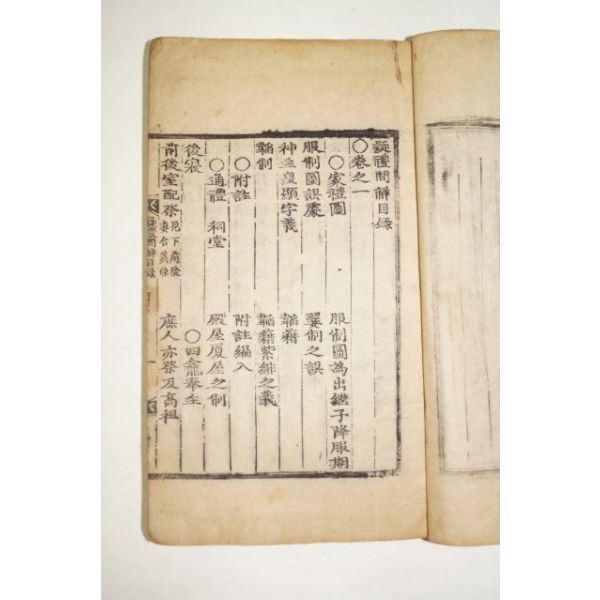 疑禮問解目録
○卷之一
○家禮圖 服制圖為出繼子降服期
服制圖誤處 翣制之誤
神主皇顯字義 韜藉
韜制 韜藉紫緋之義
○附註 附註編入
○通禮 祠堂 殿屋厦屋之制
後寢 ○四龕奉主
前後室配祭 見下 庶人亦祭及高祖
問解目録 一